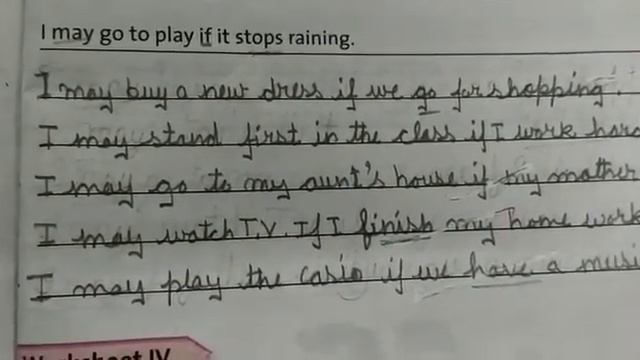 I may go to play if it stops raining.
I may buy a new dress if we go for shopping.
I may stand first in the class if I work hard
I may go to my aunt's house if my mother
I may watch T.V. If I finish my home work
I may play the casio if we have a musi
Worksheet IV